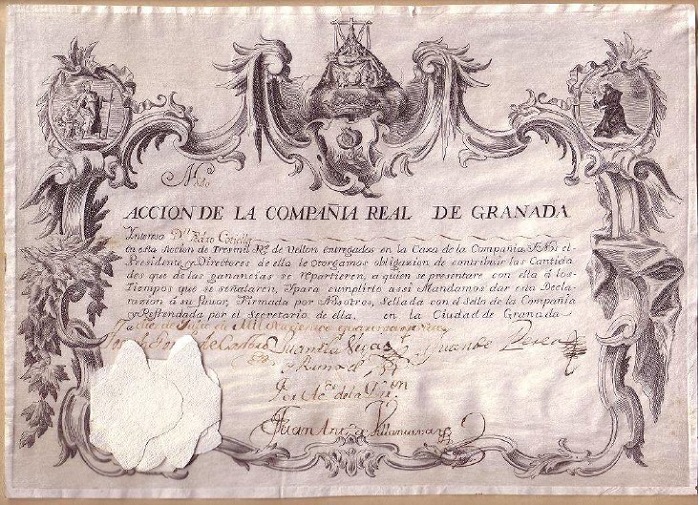 ACCION DE LA COMPAÑIA REAL DE GRANADA
Interesa Dn. Pedro
en esta Accion de Tres mil Rs. de Vellon entregados en la Caxa de la Compañia, I Nos el
Presidente y Directores de ella le otorgamos obligasion de contribuir las Cantida
des que de las ganancias se repartieren, a quien se presentare con ella á los
Tiempos que se señalaren, I para cumplirlo asi Mandamos dar esta Decla-
rasion á su favor, Firmada por Nosotros, Sellada con el Sello de la Compañia
y Refrendada por el Secretario de ella. en la Ciudad de Granada
de Julio de Mil
Juan de
Por Ac. de la
Juan Ant.